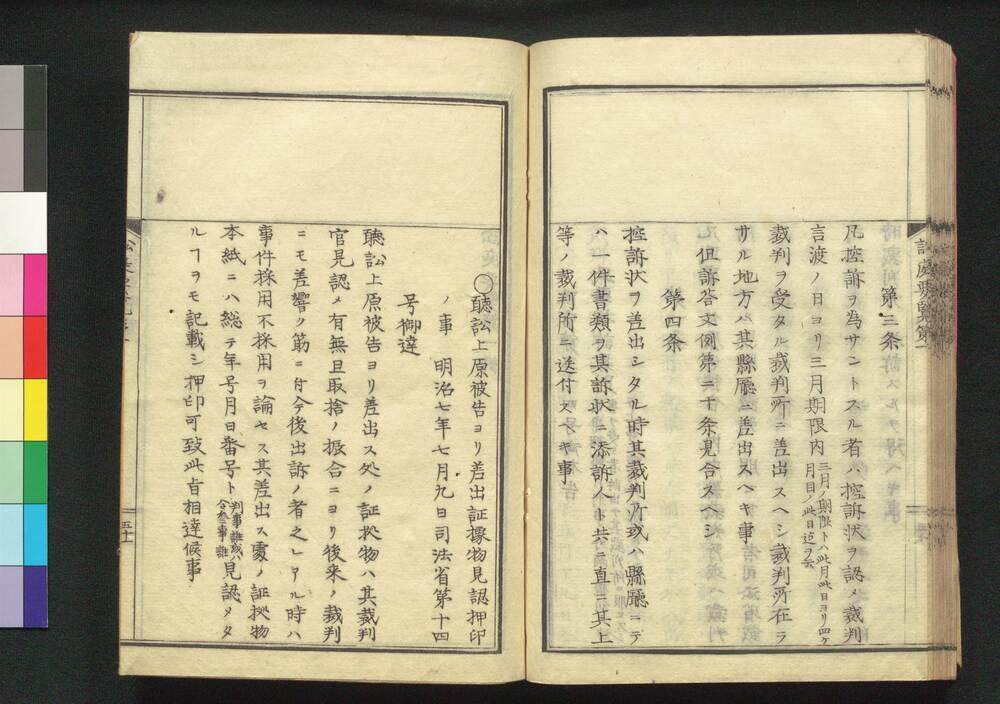 第三条
凡控訴ヲ為サントスル者ハ控訴状ヲ認メ裁判
言渡ノ日ヨリ三月期限内三月ノ期限トハ此月此日ヨリ四ケ月目ノ此日迄ヲ云
裁判ヲ受タル裁判所ニ差出スヘシ裁判所在ラ
サル地方ハ其縣廳ニ差出スヘキ事
但訴答文例第二十条見合スヘシ
第四条
控訴状ヲ差出シタル時其裁判所或ハ縣廳ニテ
ハ一件書類ヲ其訴状ニ添訴人ト共ニ直ニ其上
等ノ裁判所ニ送付スヘキ事
〇聽訟上原被告ヨリ差出証據物見認押印
ノ事 明治七年七月九日司法省第十四
号御達
聽訟上原被告ヨリ差出ス処ノ証拠物ハ其裁判
官見認メ有無且取捨ノ振合ニヨリ後来ノ裁判
ニモ差響ク筋ニ付今後出訴ノ者之レアル時ハ
事件採用不採用ヲ論セス其差出ス處ノ証拠物
本紙ニハ総テ年号月日番号ト判事誰或ハ令参事誰見認メタ
ルヿヲモ記載シ押印可致此旨相達候事
五十一